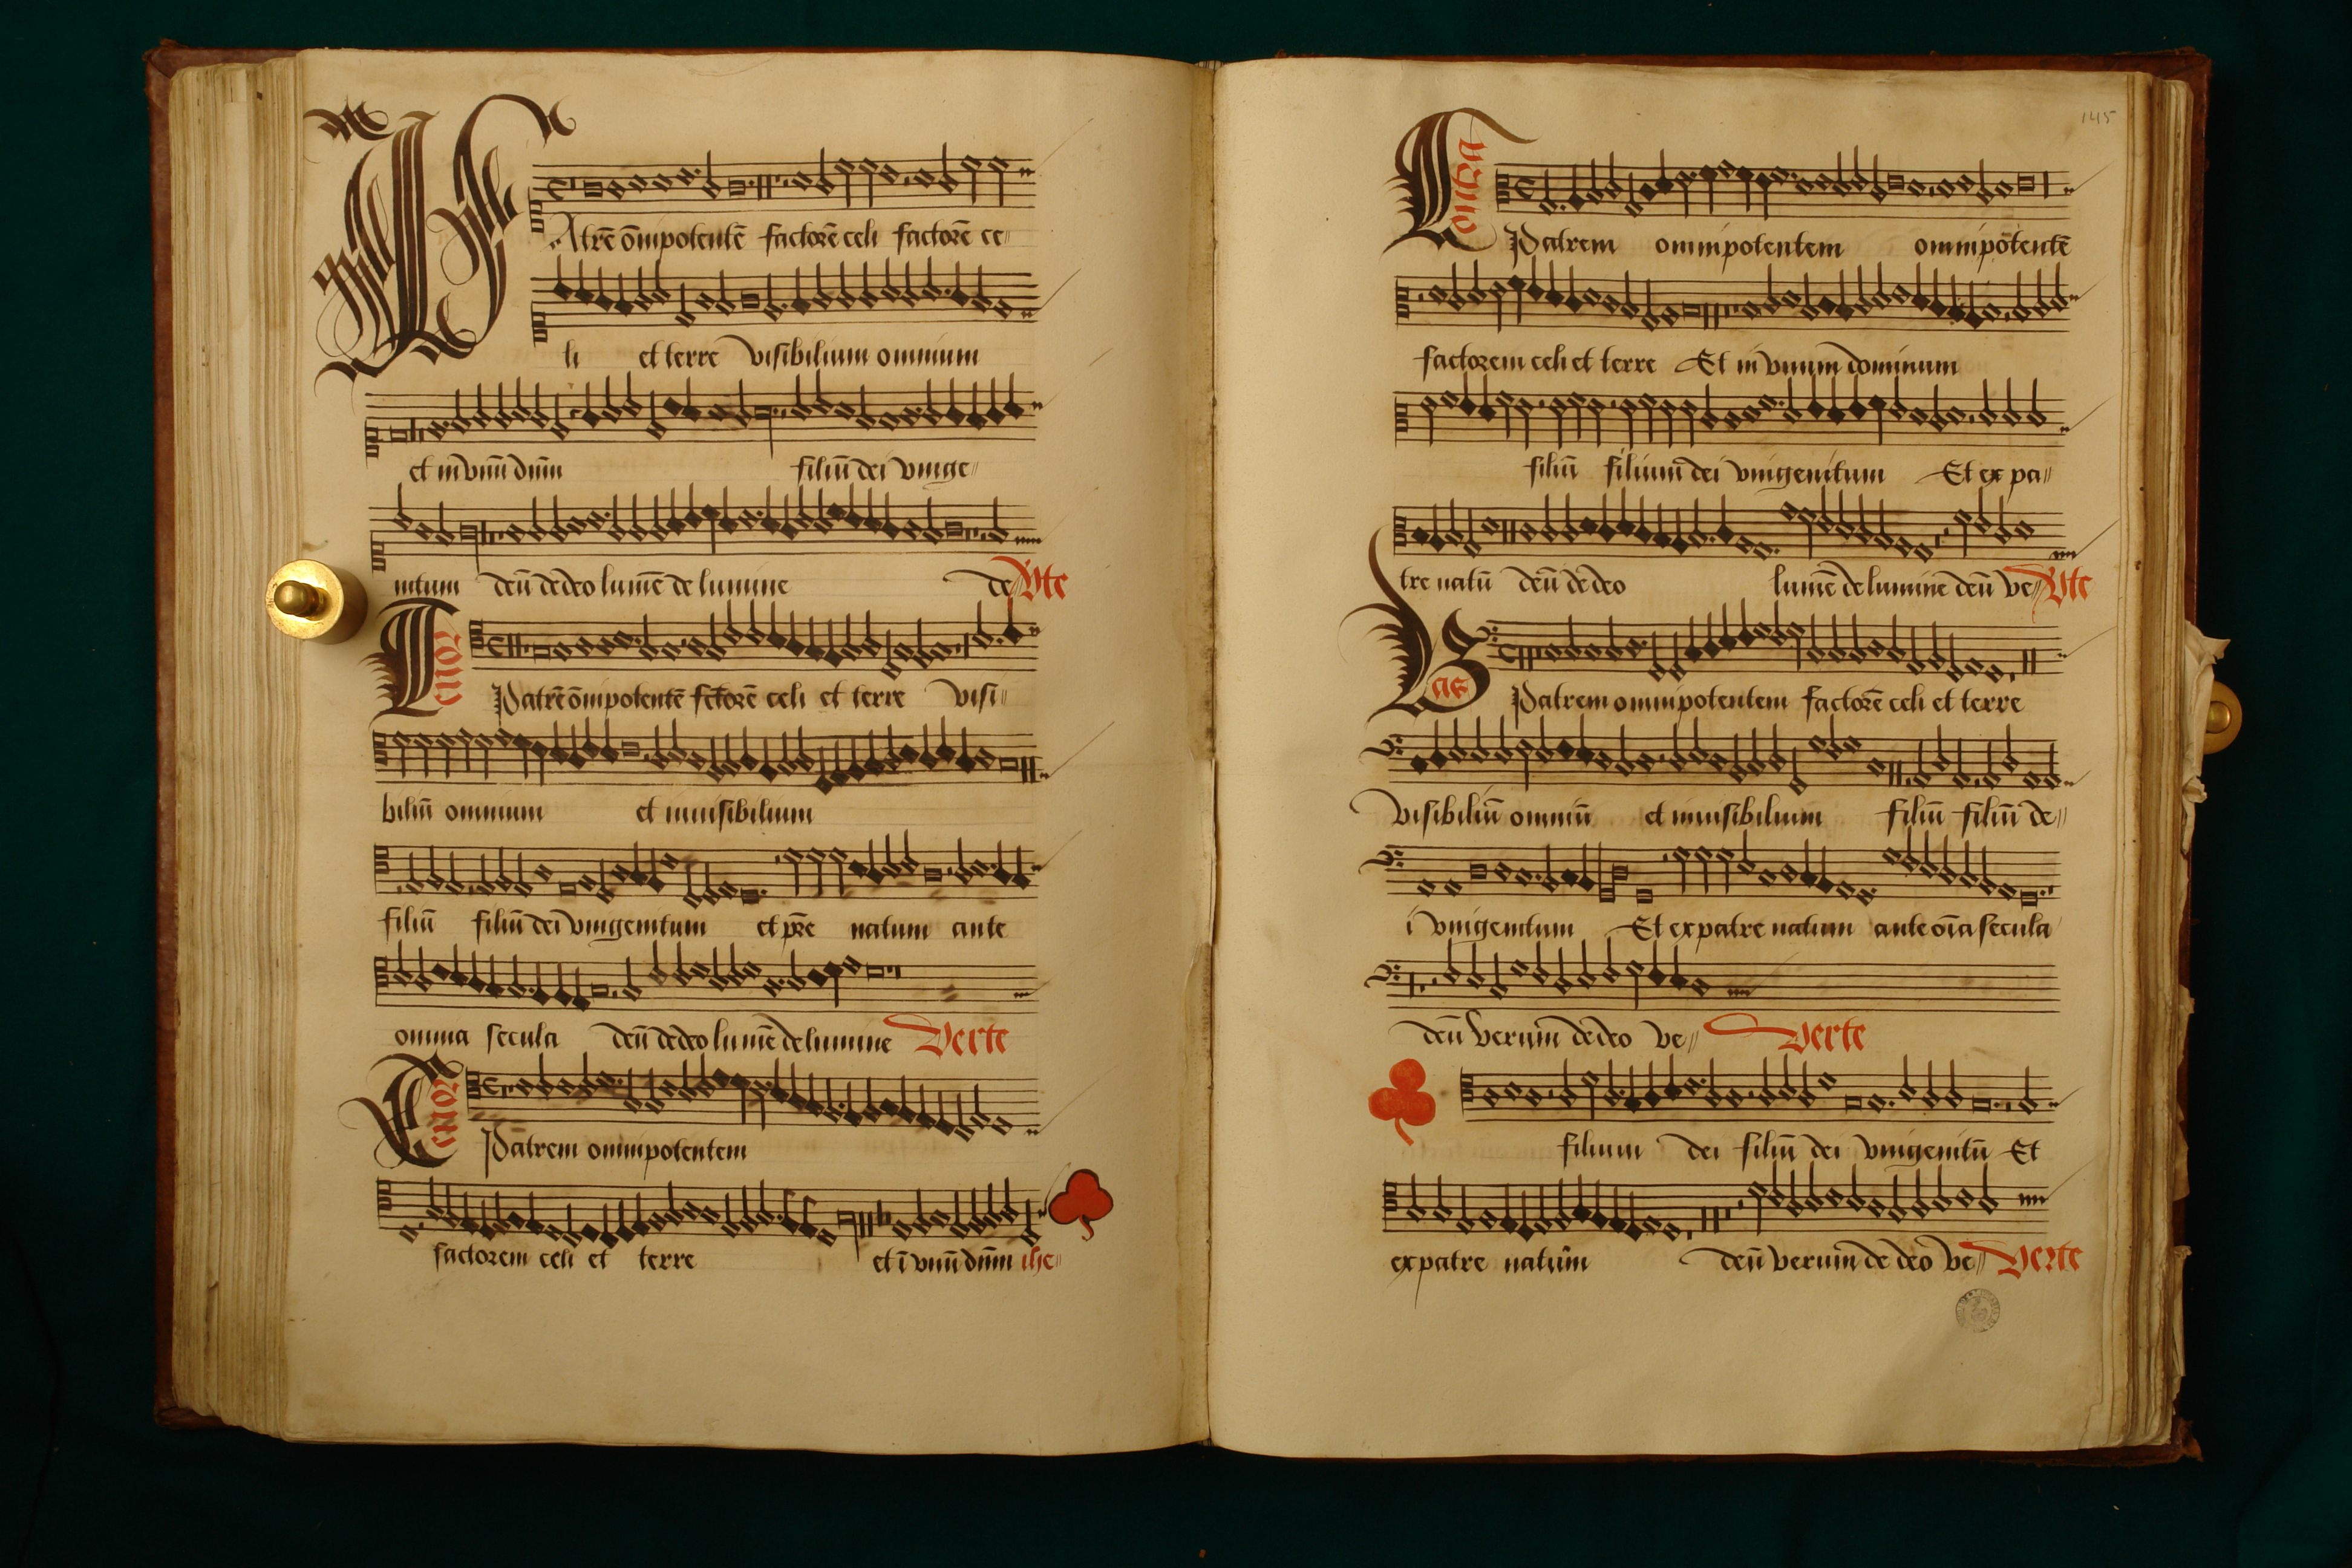 PAtrē ōmipotentē factorē celi factorē ce
li et terre visibilium omnium
et in vnū dn̄m filiū dei vnige
nitum deū de deo lumē de lumine de Vte
Tenor
Patrē ōmipotentē fctorē celi et terre visi
biliū omnium et inuisibilium
filiū filiū dei vnigenitum et pr̄e natum ante
omnia secula deū de deo lumē de lumine Verte
Tenor
Patrem omnipotentem
factorem celi et terre et ī vnū dn̄m ihe
145
Contra
Patrem omnipotentem omnipotentē
factorem celi et terre Et in vnum dominum
filiū filium dei vnigenitum Et ex pa
tre natū deū de deo lumē de lumine deū ve Vte
Bas
Patrem omnipotentem factorē celi et terre
visibiliū omniū et inuisibilium filiū filiū de
i vnigenitum Et ex patre natum ante oīa secula
deū verum de deo ve Verte
filium dei filiū dei vnigenitū Et
ex patre natum deū verum de deo ve Verte